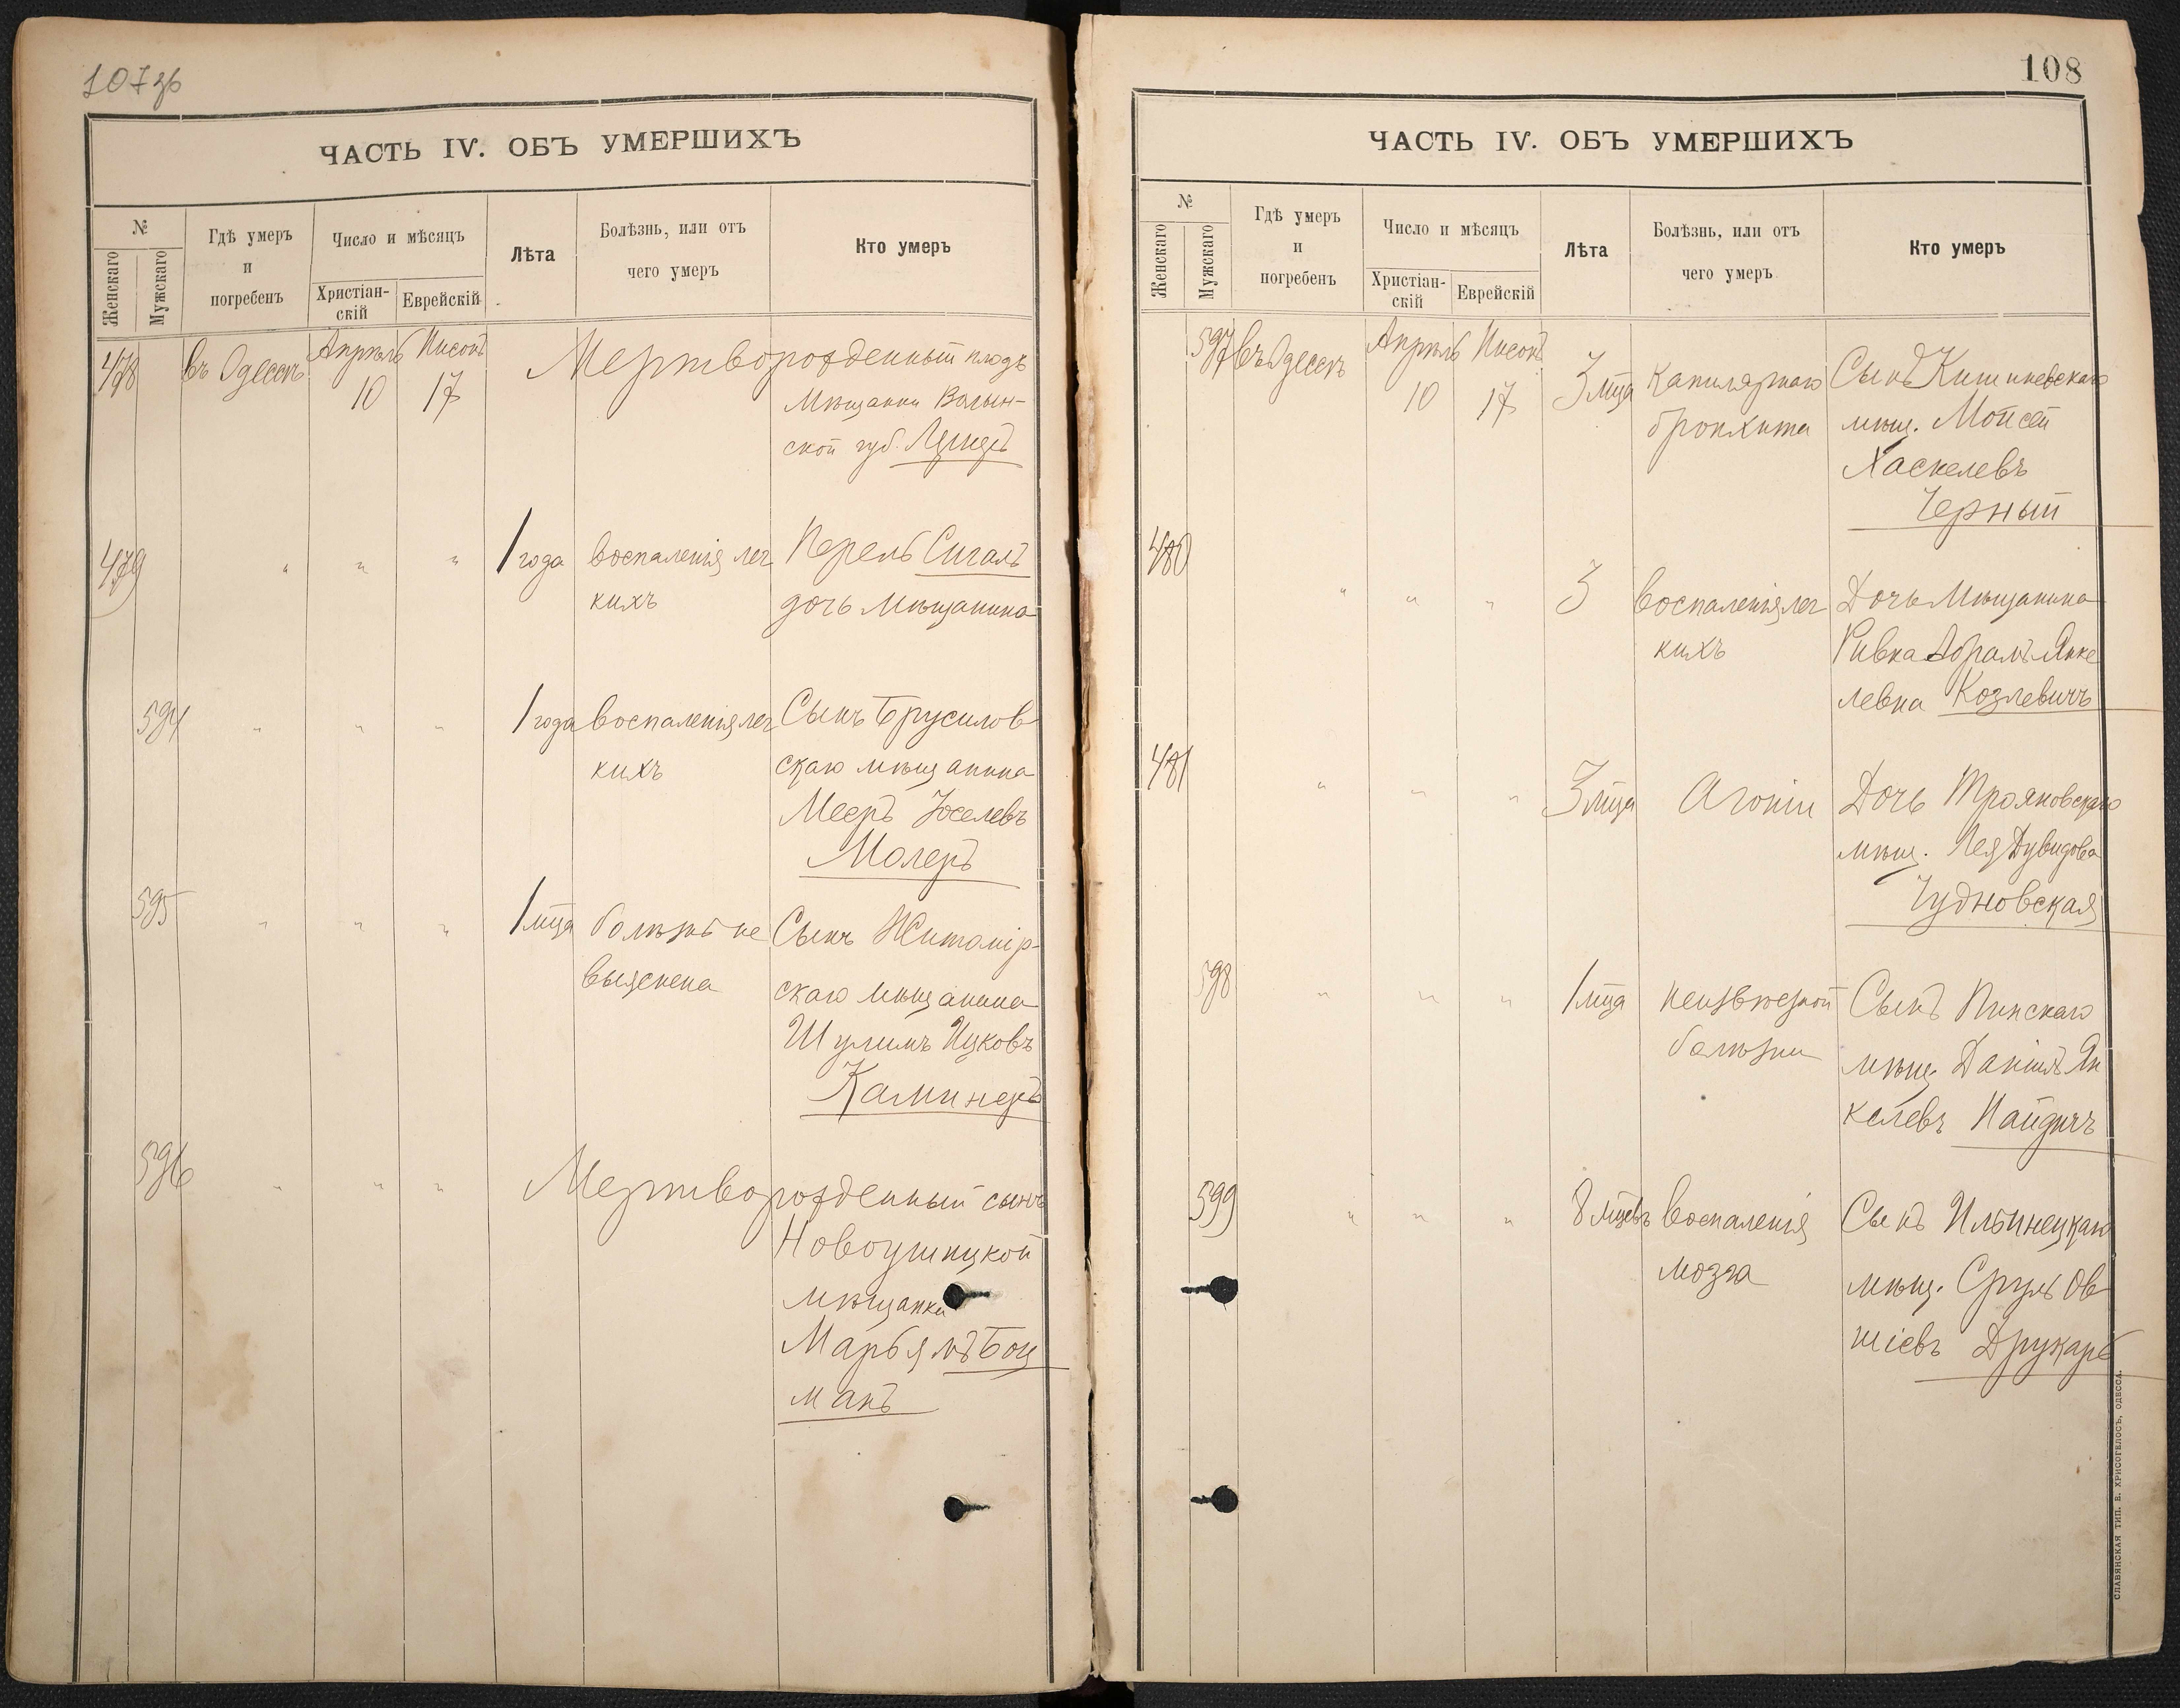 107 зв
ЧАСТЬ IV. ОБЪ УМЕРШИХЪ
№
Женскаго
Мужскаго
Гдѣ умеръ
и
погребенъ
Число и мѣсяцъ
Христіан-
скій
Еврейскій
Лѣта
Болѣзнь, или отъ
чего умеръ
Кто умеръ
478 въ Одессѣ Апрѣль 10 Нисонъ 17 Мертворожденный плодъ
Мѣщанки Волын-
ской губ.
479 " " " 1 года воспаленія лег Перель Сигалъ
кихъ дочь мѣщанина
594 " " " 1 года воспаленія лег Сынъ Брусилов
кихъ скаго мѣщанина
Мееръ Іоселевъ
Молеръ
595 " " " 1 мца болѣзнь не Сынъ Житомір-
выяснена скаго мѣщанина
Шулимъ Ицковъ
Каминеръ
596 " " " Мертворожденный сынъ
Новоушицкой
мѣщанки
Марьямъ Боц
манъ
108
ЧАСТЬ IV. ОБЪ УМЕРШИХЪ
№
Женскаго
Мужскаго
Гдѣ умеръ
и
погребенъ
Число и мѣсяцъ
Христіан-
скій
Еврейскій
Лѣта
Болѣзнь, или отъ
чего умеръ
Кто умеръ
597 въ Одессѣ Апрѣль 10 Нисонъ 17 3 мца капилярнаго Сынъ Кишиневскаго
бронхита мѣщ. Мойсей
Хаскелевъ
Черный
480 " " " 3 воспаленія лег Дочь мѣщанина
кихъ Ривка Абрамъ Янке
левна Козлевичъ
481 " " " 3 мца Агоніи Дочь Трояновскаго
мѣщ. Лея Дувидова
Чудновская
598 " " " 1 мца неизвѣстной Сынъ Пинскаго
болѣзни мѣщ. Даніилъ Ян
келевъ Найдичъ
599 " " " 8 мцевъ воспаленія Сынъ Ильинецкаго
мозга мѣщ. Сруль Ов
шіевъ Друкарь
СЛАВЯНСКАЯ ТИП. Е. ХРИСОГЕЛОСЪ, ОДЕССА.